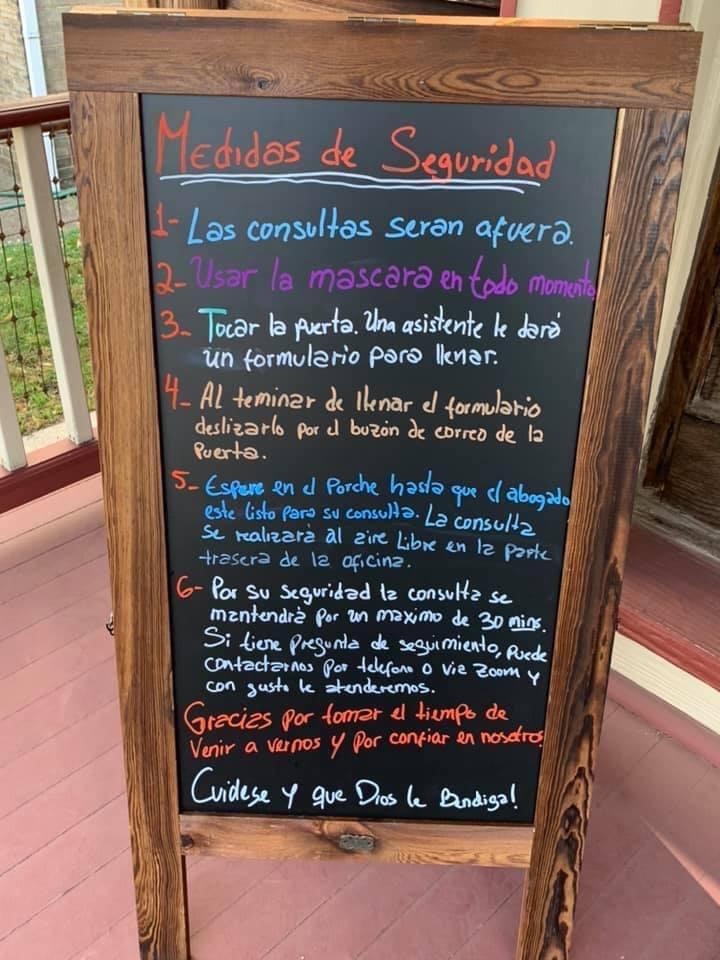 Medidas de Seguridad
1- Las consultas seran afuera.
2- Usar la mascara en todo momento.
3- Tocar la puerta. Una asistente le dará
un formulario para llenar.
4- Al teminar de llenar el formulario
deslizarlo por el buzón de correo de la
Puerta.
5- Espere en el Porche hasta que el abogado
este listo para su consulta. La consulta
se realizará al aire Libre en la parte
trasera de la oficina.
6- Por su seguridad la consulta se
mantendrà por un maximo de 30 mins.
Si tiene pregunta de seguimiento, puede
contactarnos por telefono o via Zoom y
con gusto le atenderemos.
Gracias por tomar el tiempo de
venir a vernos y por confiar en nosotros.
Cuidese y que Dios le Bendiga!